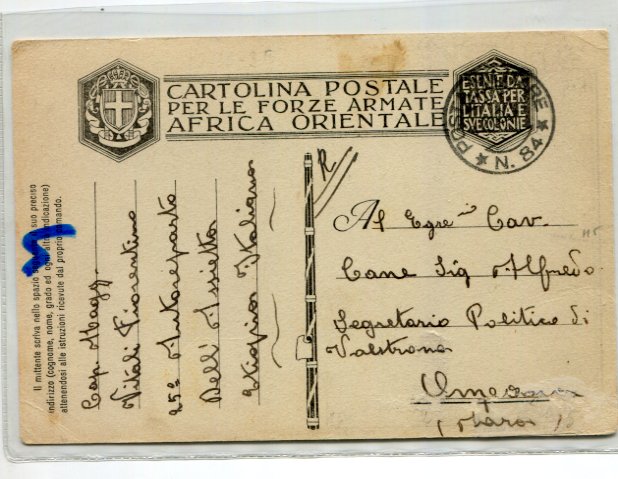 CARTOLINA POSTALE
PER LE FORZE ARMATE
AFRICA ORIENTALE
ESENTE DA
TASSA PER
L'ITALIA E
SVE COLONIE
N. 84
Il mittente scriva nello spazio suo preciso
indirizzo (cognome, nome, grado ed ogni altra indicazione)
attenendosi alle istruzioni ricevute dal proprio comando.
Cap. Magg.
Vitali Fiorentino
25° Autoreparto
Dell' Assietta
Etiopia Italiana
Al Egre Cav.
Cane Sig Alfredo
Segretario Politico di
Valstrona